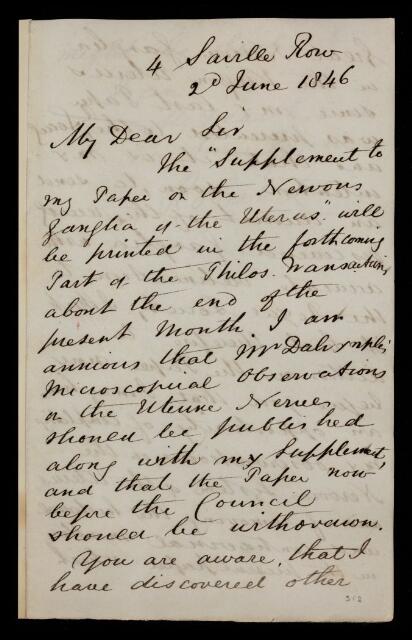 4 Saville Row
2d June 1846
My Dear Sir
The "Supplement to
my Paper on the Nervous
Ganglia of the Uterus" will
be printed in the forthcoming
Part of the Philos. Transactions
about the end of the
present Month. I am
anxious that Mr Dalrymple's
Microscopical Observations
on the Uterine Nerves
should be published
along with my Supplement,
and that the Paper now
before the Council
should be withdrawn.
You are aware, that I
have discovered other